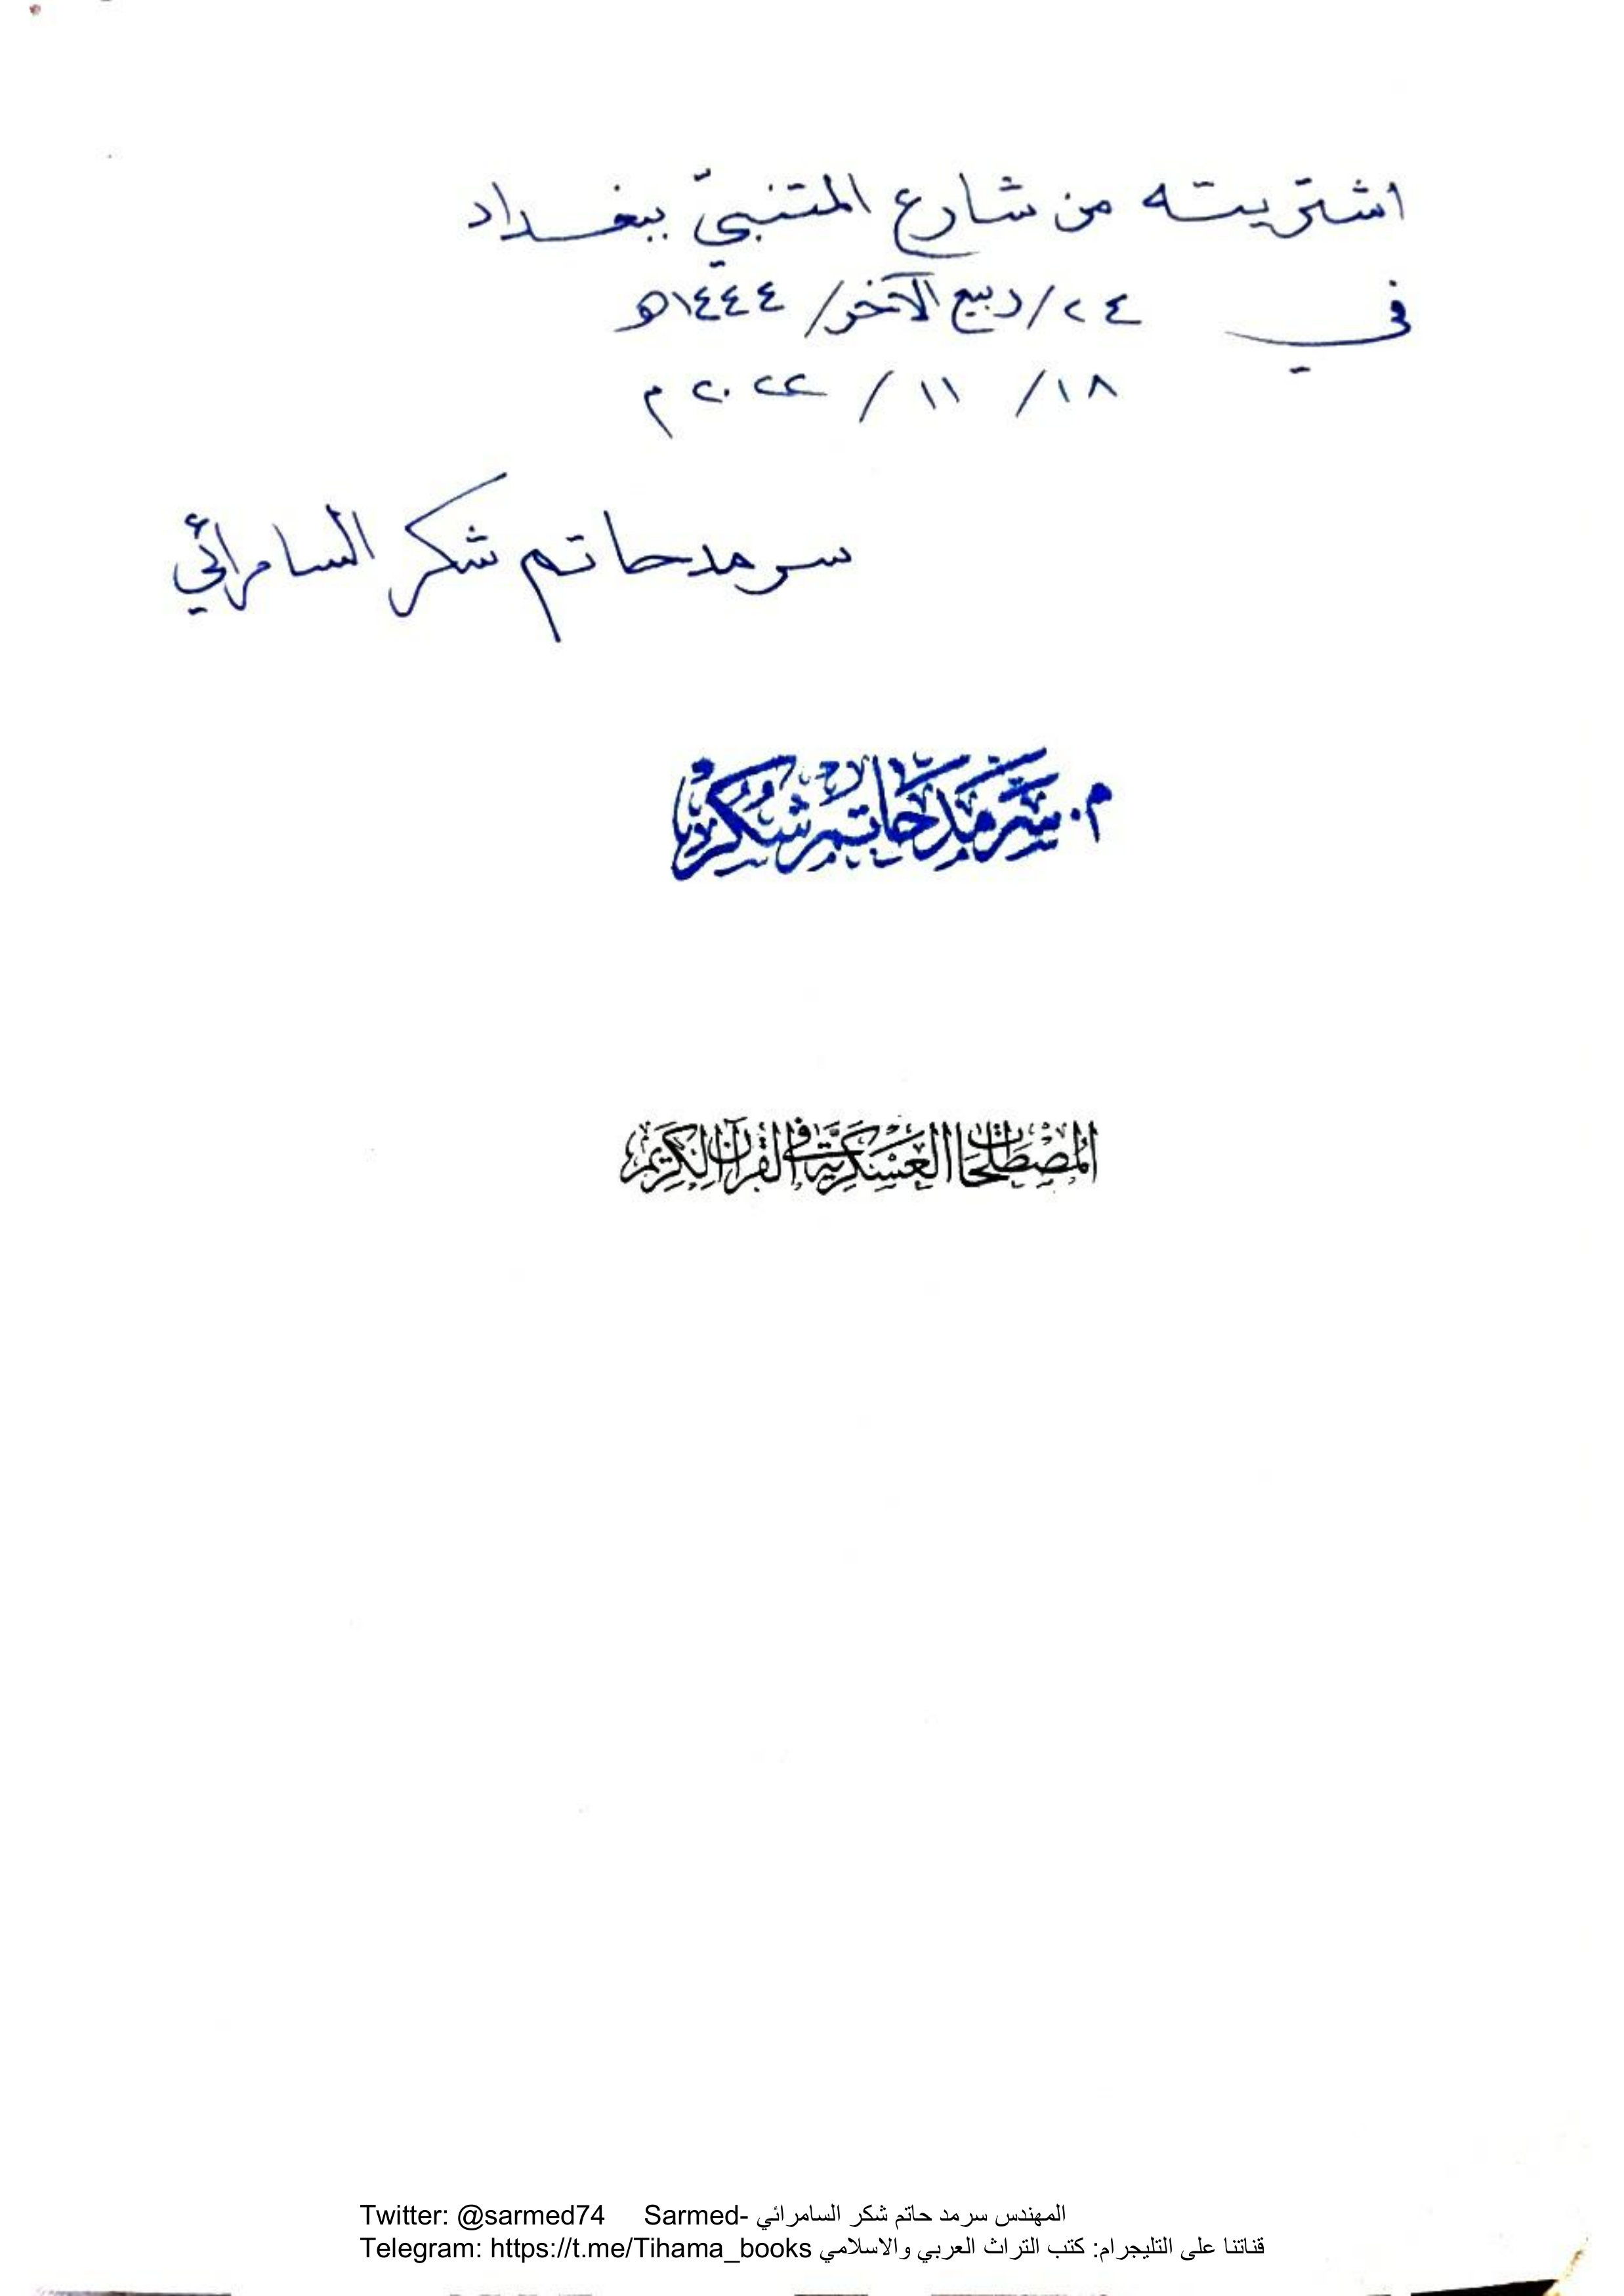 اشتريته من شارع المتنبيّ ببغداد
في ٢٤/ربيع الآخر/١٤٤٤ه
١٨/ ١١ / ٢٠٢٢م
سرمد حاتم شكر السامرائي
م. سرمد حاتم شكر
المصطلحات العسكرية في القرآن الكريم
Twitter: @sarmed74 Sarmed- المهندس سرمد حاتم شكر السامرائي
Telegram: https://t.me/Tihama_books قناتنا على التليجرام: كتب التراث العربي والاسلامي